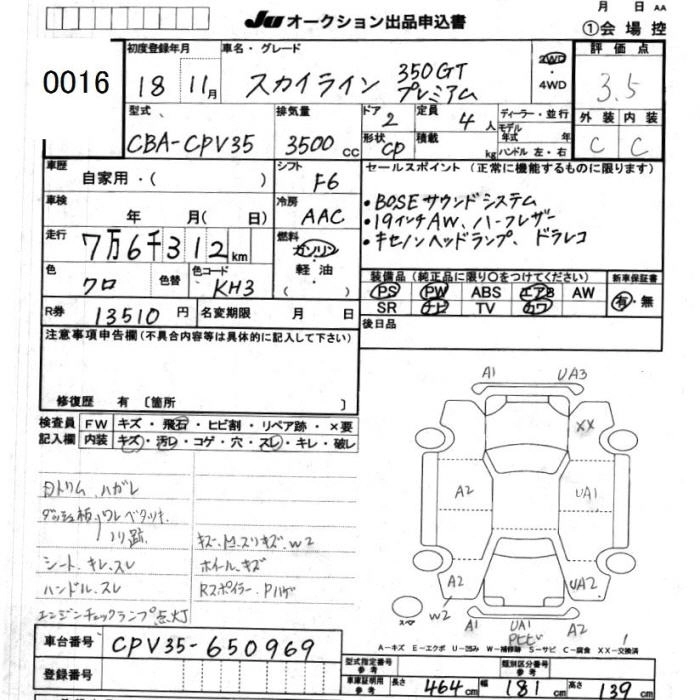 月 日 AA
Ju オークション出品申込書
①会場控
0016
初度登録年月
18 11月
車名・グレード
スカイライン 350GT プレミアム
2WD・4WD
評価点
3.5
型式
CBA-CPV35
排気量
3500 cc
ドア
2
定員
4 人
形状
CP
積載
kg
ディーラー・並行
モデル年式 年
ハンドル 左・右
外装 内装
C C
車歴
自家用・( )
シフト
F6
セールスポイント(正常に機能するものに限ります)
・BOSEサウンドシステム
・19インチAW、ハーフレザー
・キセノンヘッドランプ、ドラレコ
車検
年 月( 日)
冷房
AAC
走行
7万6千312km
燃料
ガソリン・軽油・( )
色
クロ
色替
色コード
KH3
装備品(純正品に限り○をつけてください)
PS PW ABS エアB AW
SR ナビ TV カワ
新車保証書
有・無
R券
13510 円
名変期限 月 日
後日品
注意事項申告欄(不具合内容等は具体的に記入して下さい)
修復歴 有 〔箇所 〕
検査員記入欄
FW キズ・飛石・ヒビ割・リペア跡・×要
内装 キズ・汚レ・コゲ・穴・スレ・キレ・破レ
内トリム、ハガレ
ダッシュ柄ワレベタツキ
ノリ跡
シート、キレ、スレ
ハンドル、スレ
エンジンチェックランプ点灯
ホイール、キズ
Rスポイラー、Pハゲ
A1 UA3
XX
A2 UA1
A2 UA2
スペ
W2
A1 UA1 A2
Pヒビ
1
A-キズ E-エクボ U-凹み W-補修跡 S-サビ C-腐食 XX-交換済
車台番号
CPV35-650969
登録番号
型式指定番号 参考
類別区分番号 参考
車庫証明用 参考
長さ 464 cm
幅 181 cm
高さ 139 cm